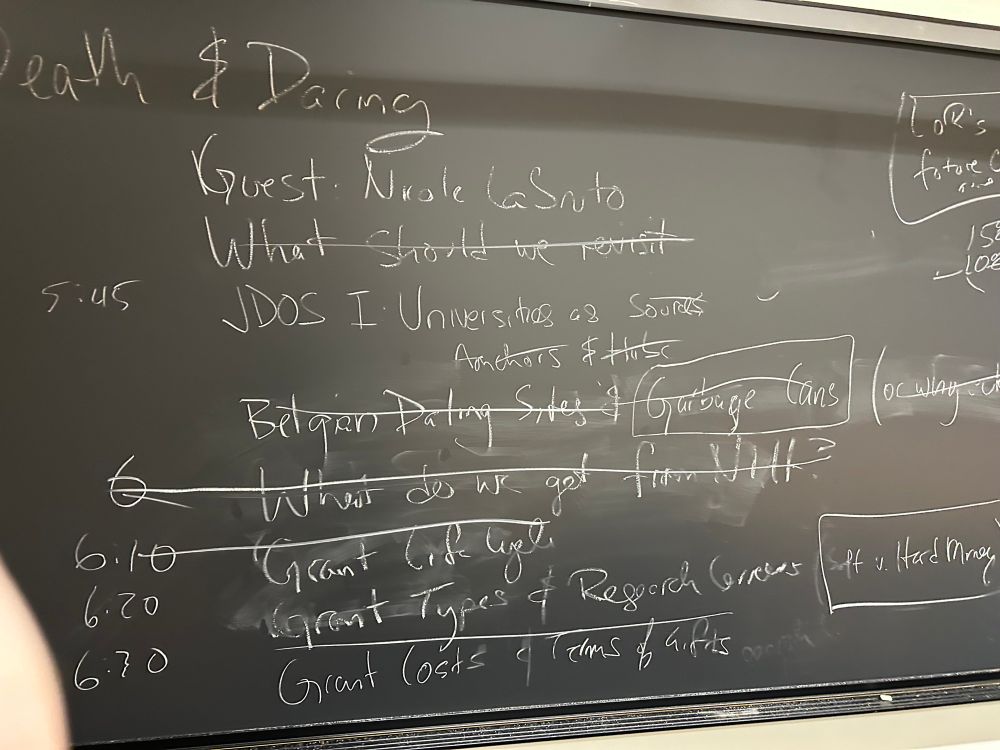 Death & Daring
Guest: Nicole LaSnto
What should we revisit
5:45 JDOS I: Universities as Sources
Anchors & Hubs
Belgian Dating Sites & Garbage Cans (or why
6 What do we get from NIH?
6:10 Grant Life Cycle
6:20 Grant Types & Research Careers
6:30 Grant Costs & Terms of Gifts
LoR's
future
15%
10%
Soft v. Hard Money